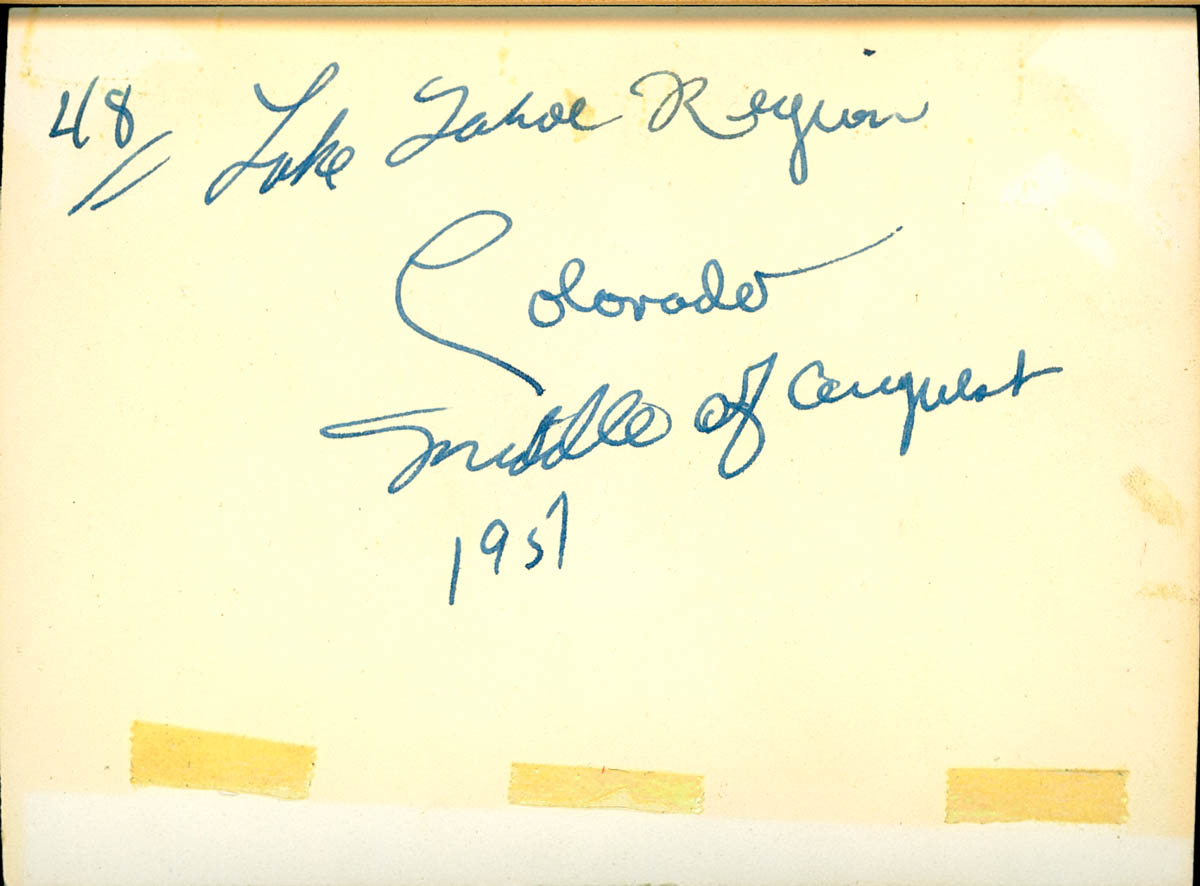 48 Lake Tahoe Region
Colorado
Middle of Conquest
1957